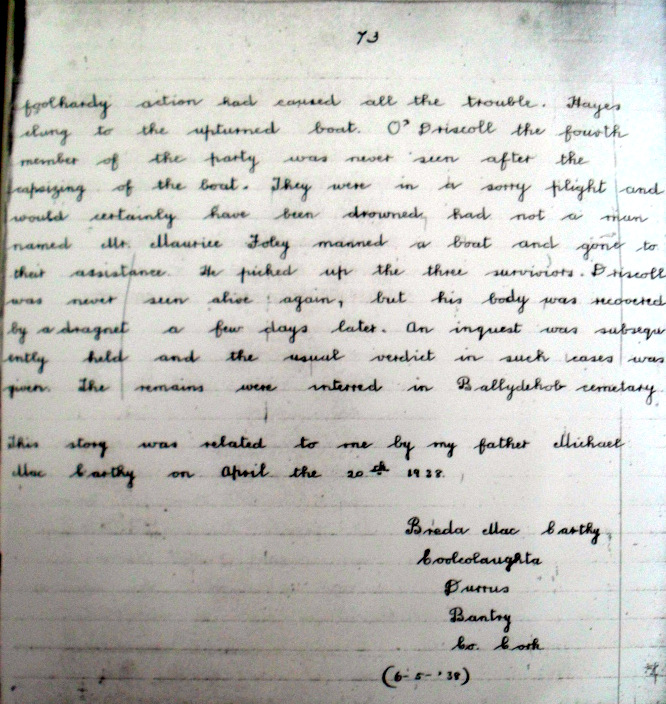 73
foolhardy action had caused all the trouble. Hayes
clung to the upturned boat. O' Driscoll the fourth
member of the party was never seen after the
capsizing of the boat. They were in a sorry plight and
would certainly have been drowned, had not a man
named Mr. Maurice Foley manned a boat and gone to
their assistance. He picked up the three surviviors. Driscoll
was never seen alive again, but his body was recovered
by a dragnet a few days later. An inquest was subsequ
ently held and the usual verdict in such cases was
given. The remains were interred in Ballydehob cemetary.
This story was related to me by my father Michael
Mac Carthy on April the 20th 1938.
Breda Mac Carthy
Coolcolaughta
Durrus
Bantry
Co. Cork
(6-5-'38)